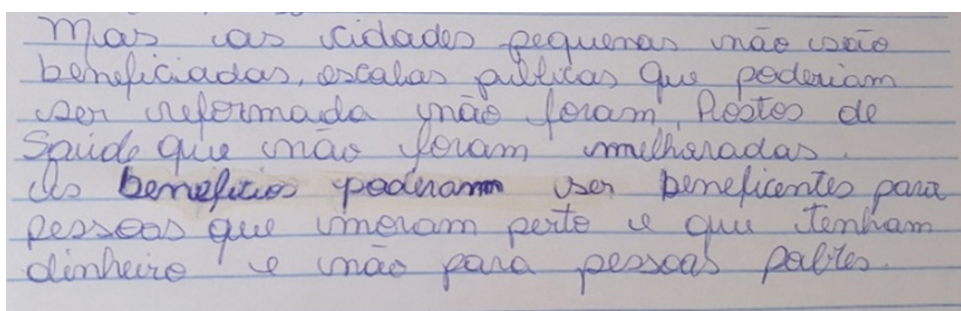 Mas as cidades pequenas não são
beneficiadas, escolas públicas que poderiam
ser reformada não foram, Postos de
Saúde que não foram melhoradas.
Os benefícios poderam ser beneficentes para
pessoas que moram perto e que tenham
dinheiro e não para pessoas pobres.